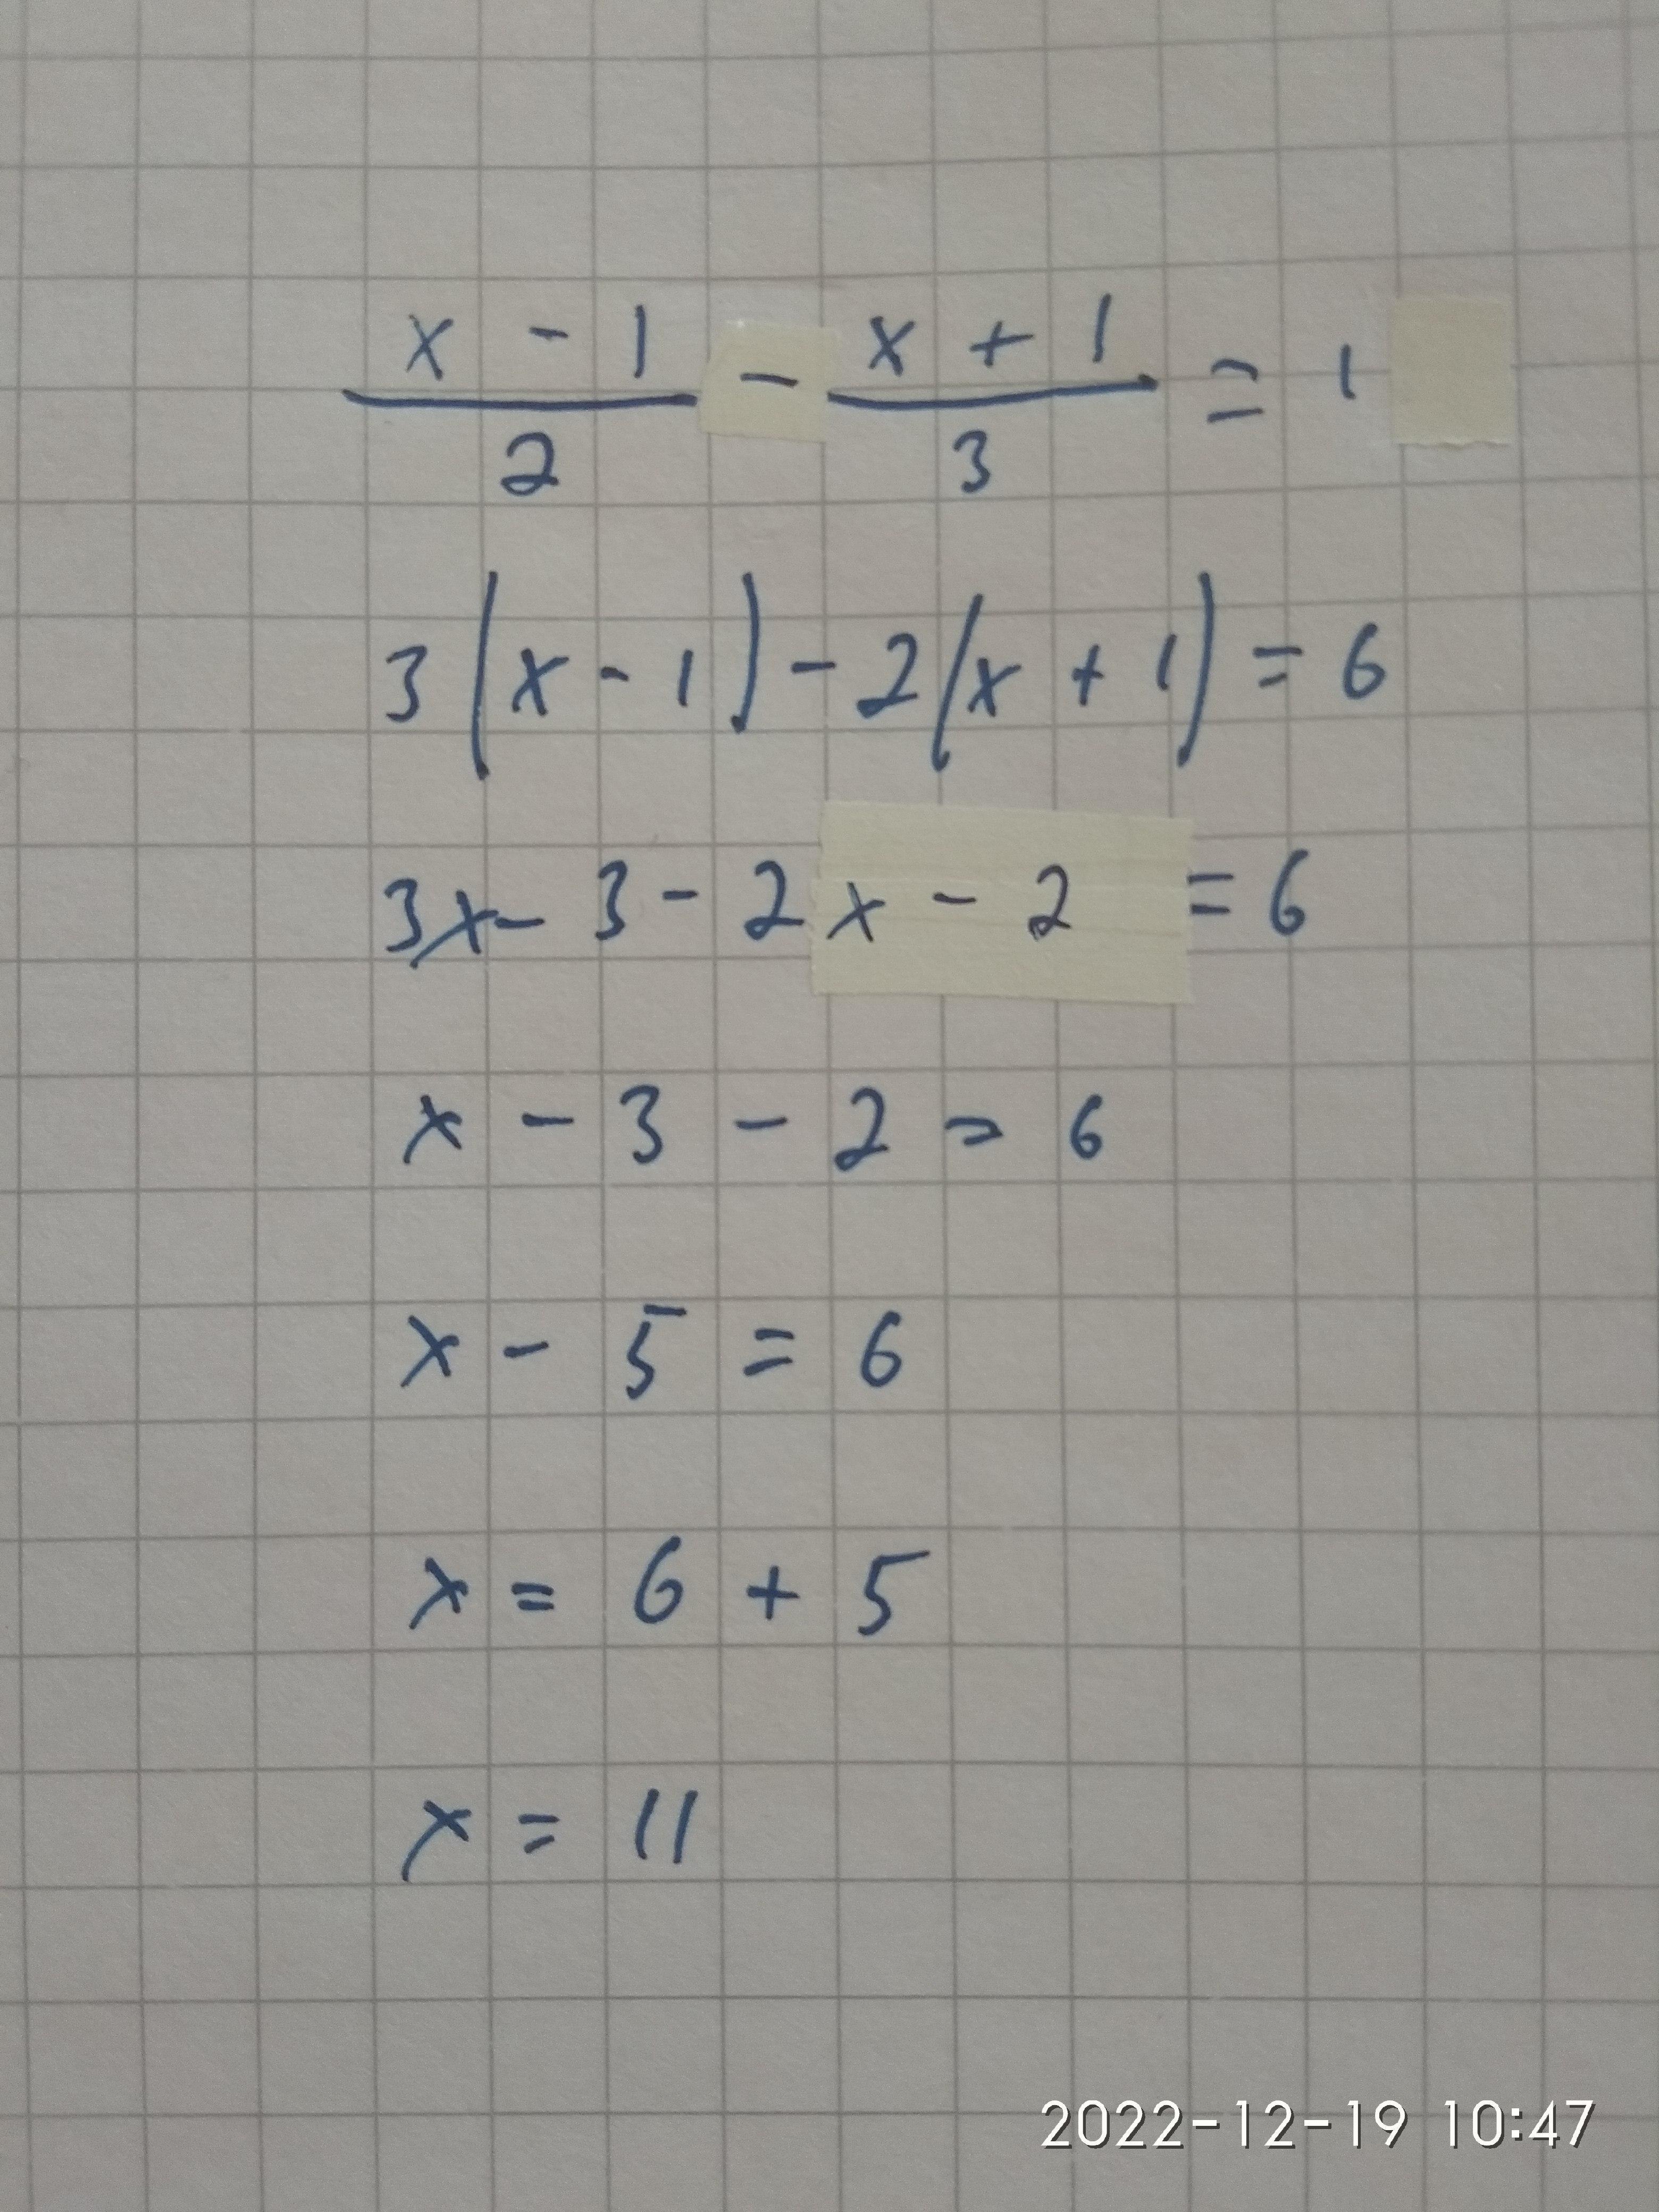 x - 1 / 2 - x + 1 / 3 = 1
3(x - 1) - 2(x + 1) = 6
3x - 3 - 2x - 2 = 6
x - 3 - 2 = 6
x - 5 = 6
x = 6 + 5
x = 11
2022-12-19 10:47